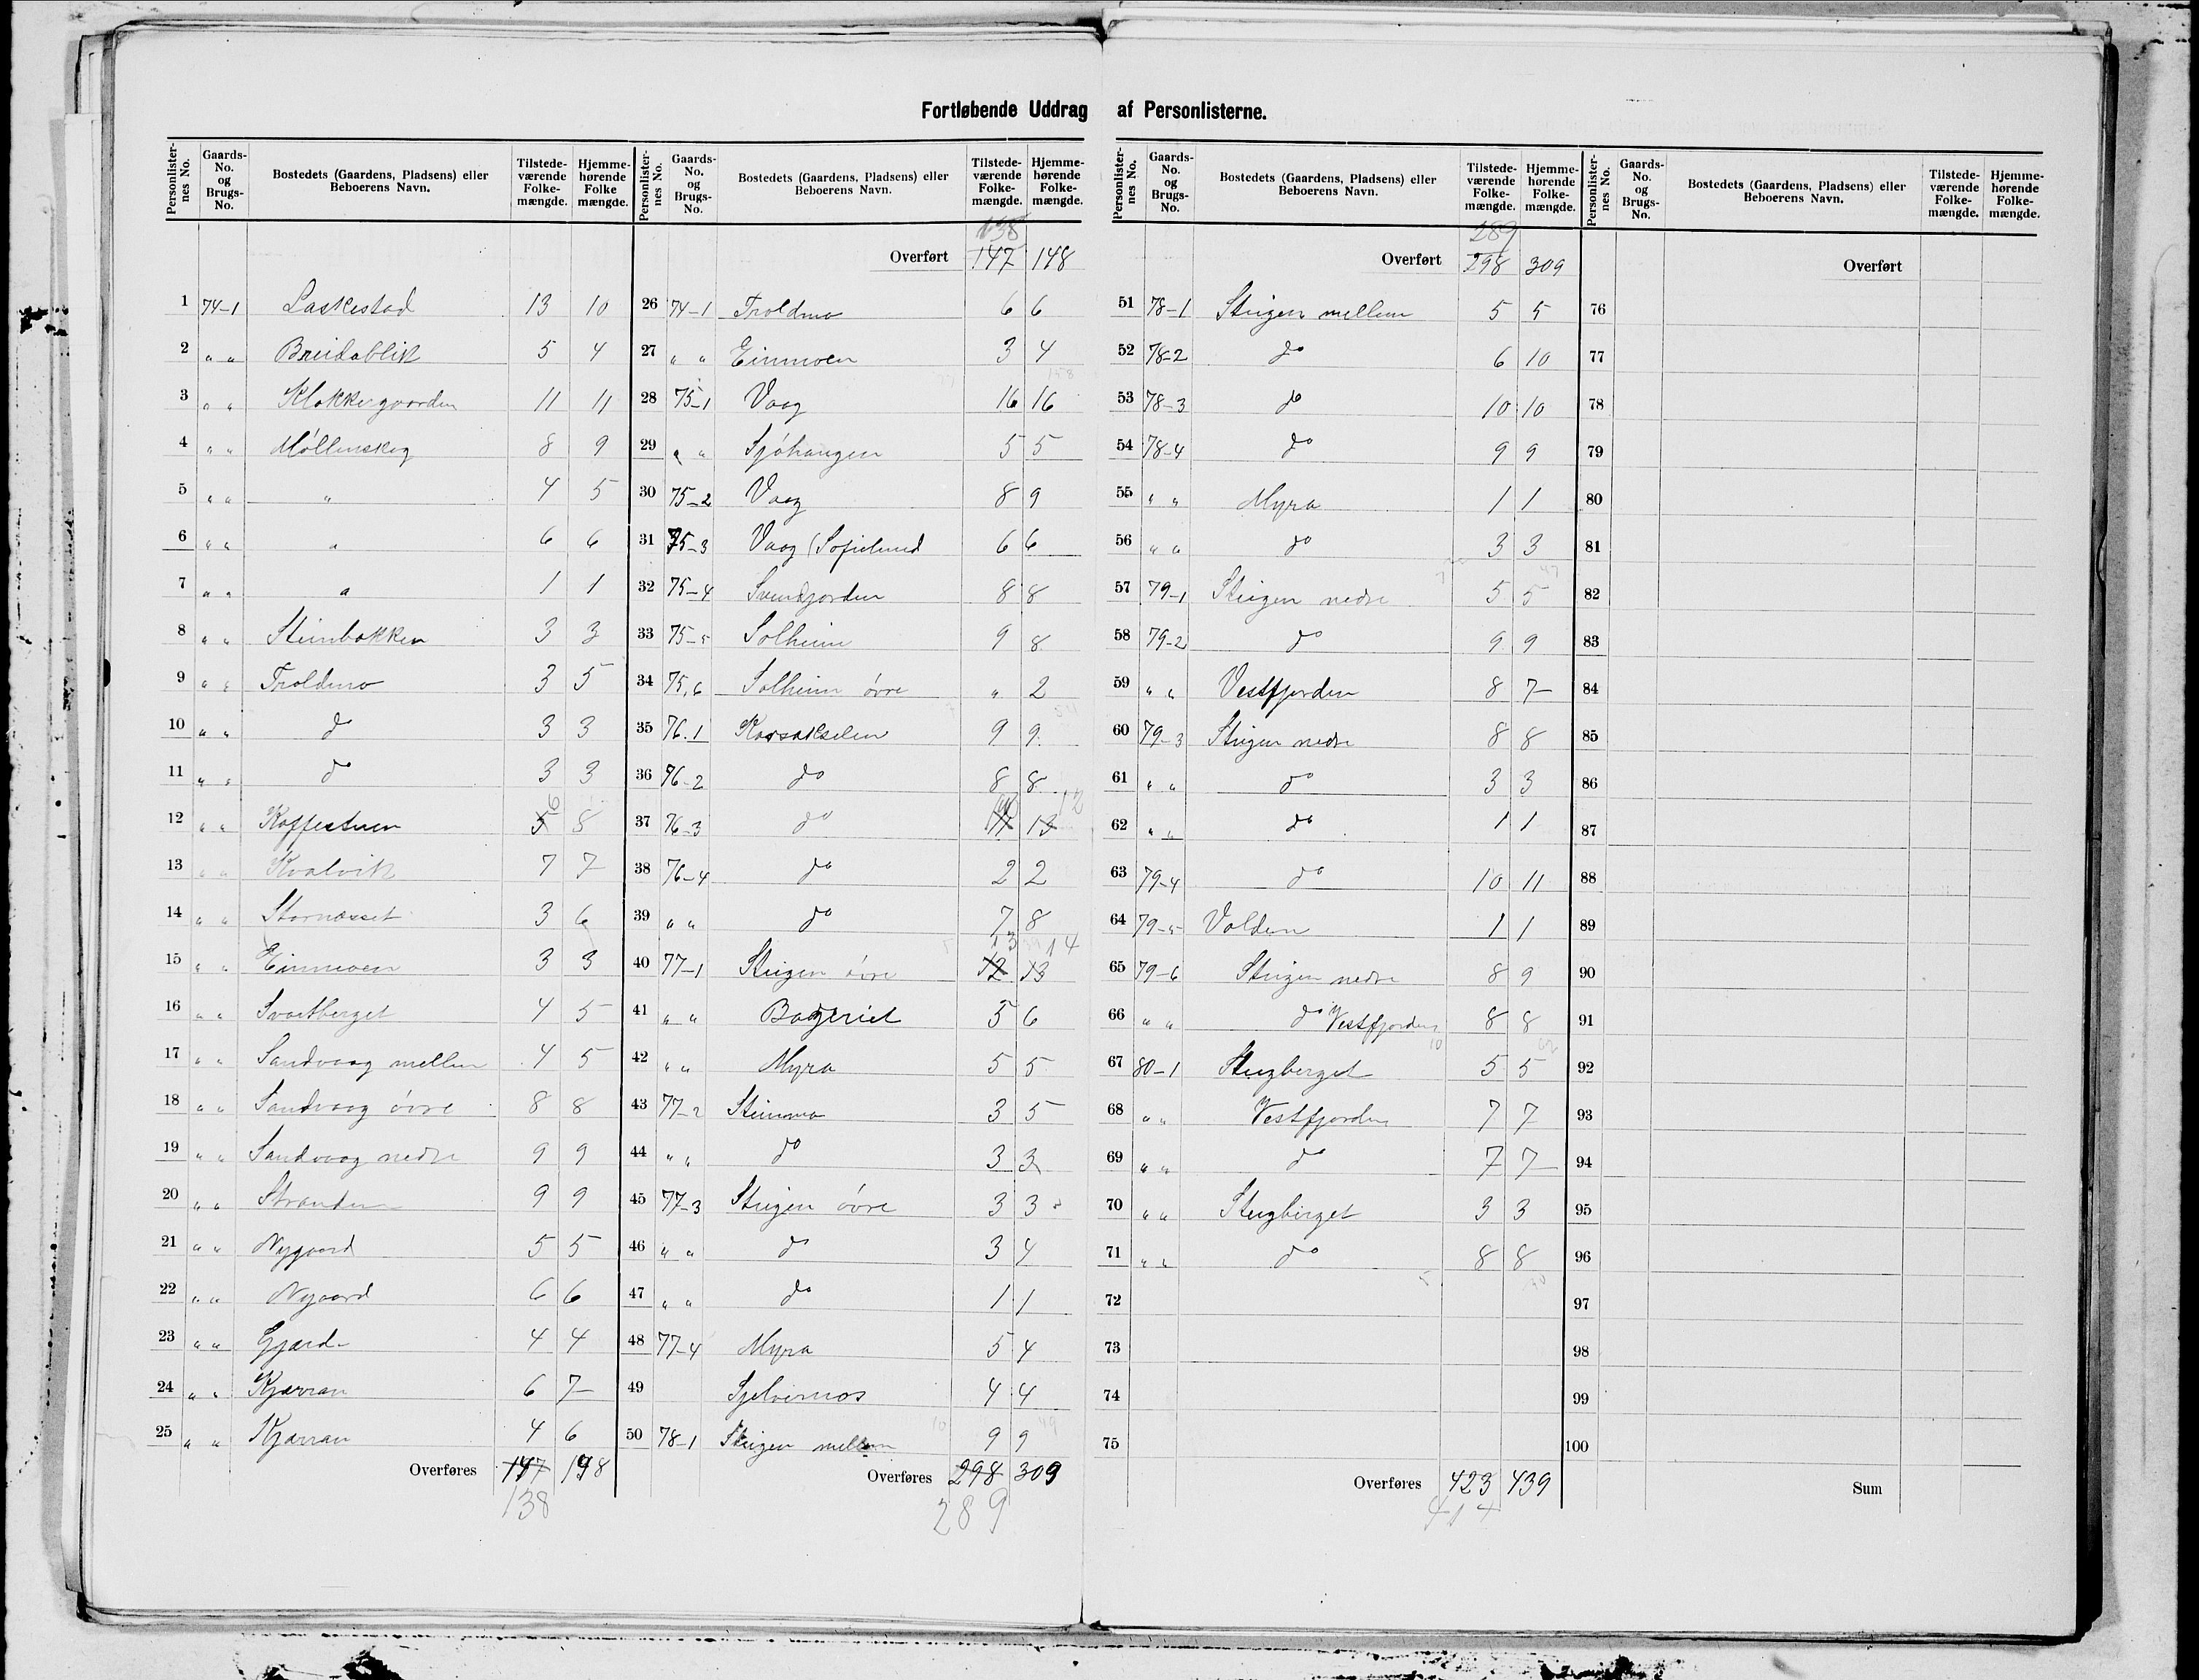 Fortløbende Uddrag af Personlisterne.
Personlisternes No. Gaards-No. og Brugs-No. Bostedets (Gaardens, Pladsens) eller Beboerens Navn. Tilstedeværende Folkemængde. Hjemmehørende Folkemængde.
1 74-1 Laskestad 13 10
2 " " Breidablik 5 4
3 " " Klokkergaarden 11 11
4 " " Möllenskog 8 9
5 " " " 4 5
6 " " " 6 6
7 " " " 1 1
8 " " Steinbakken 3 3
9 " " Troldmo 3 5
10 " " do 3 3
11 " " do 3 3
12 " " Kaffestuen 5 6 8
13 " " Kvalvik 7 7
14 " " Stornæsset 3 6
15 " " Einmoen 3 3
16 " " Svartberget 4 5
17 " " Sandvaag mellem 4 5
18 " " Sandvaag övre 8 8
19 " " Sandvaag nedre 9 9
20 " " Stranden 9 9
21 " " Nygaard 5 5
22 " " Nygaard 6 6
23 " " Gjærd 4 4
24 " " Kjærran 6 7
25 " " Kjærran 4 6
Overføres 147 148
138
Personlisternes No. Gaards-No. og Brugs-No. Bostedets (Gaardens, Pladsens) eller Beboerens Navn. Tilstedeværende Folkemængde. Hjemmehørende Folkemængde.
138
Overført 147 148
26 74-1 Troldmo 6 6
27 " " Einmoen 3 4
28 75-1 Vaag 16 16
29 " " Sjöhaugen 5 5
30 75-2 Vaag 8 9
31 75-3 Vaag (Sofielund 6 6
32 75-4 Svendjorden 8 8
33 75-5 Solheim 9 8
34 75,6 Solheim övre " 2
35 76.1 Korsakselen 9 9
36 76-2 do 8 8
37 76-3 do 13 12
38 76-4 do 2 2
39 " " do 7 8
40 77-1 Steigen övre 12 13 13 14
41 " " Bageriet 5 6
42 " " Myra 5 5
43 77-2 Steinmo 3 5
44 " " do 3 3
45 77-3 Steigen övre 3 3
46 " " do 3 4
47 " " do 1 1
48 77-4 Myra 5 4
49 Sjelvernos 4 4
50 78-1 Steigen mellem 9 9
Overføres 298 309
289
Personlisternes No. Gaards-No. og Brugs-No. Bostedets (Gaardens, Pladsens) eller Beboerens Navn. Tilstedeværende Folkemængde. Hjemmehørende Folkemængde.
289
Overført 298 309
51 78-1 Steigen mellem 5 5
52 78-2 do 6 10
53 78-3 do 10 10
54 78-4 do 9 9
55 " " Myra 1 1
56 " " do 3 3
57 79-1 Steigen nedre 5 5
58 79-2 do 9 9
59 " " Vestfjorden 8 7
60 79-3 Steigen nedre 8 8
61 " " do 3 3
62 " " do 1 1
63 79-4 do 10 11
64 79-5 Volden 1 1
65 79-6 Steigen nedre 8 9
66 " " do Vestfjorden 8 8
67 80-1 Steigberget 5 5
68 " " Vestfjorden 7 7
69 " " do 7 7
70 " " Steigberget 3 3
71 " " do 8 8
72
73
74
75
Overføres 423 439
414
Personlisternes No. Gaards-No. og Brugs-No. Bostedets (Gaardens, Pladsens) eller Beboerens Navn. Tilstedeværende Folkemængde. Hjemmehørende Folkemængde.
Overført
76
77
78
79
80
81
82
83
84
85
86
87
88
89
90
91
92
93
94
95
96
97
98
99
100
Sum